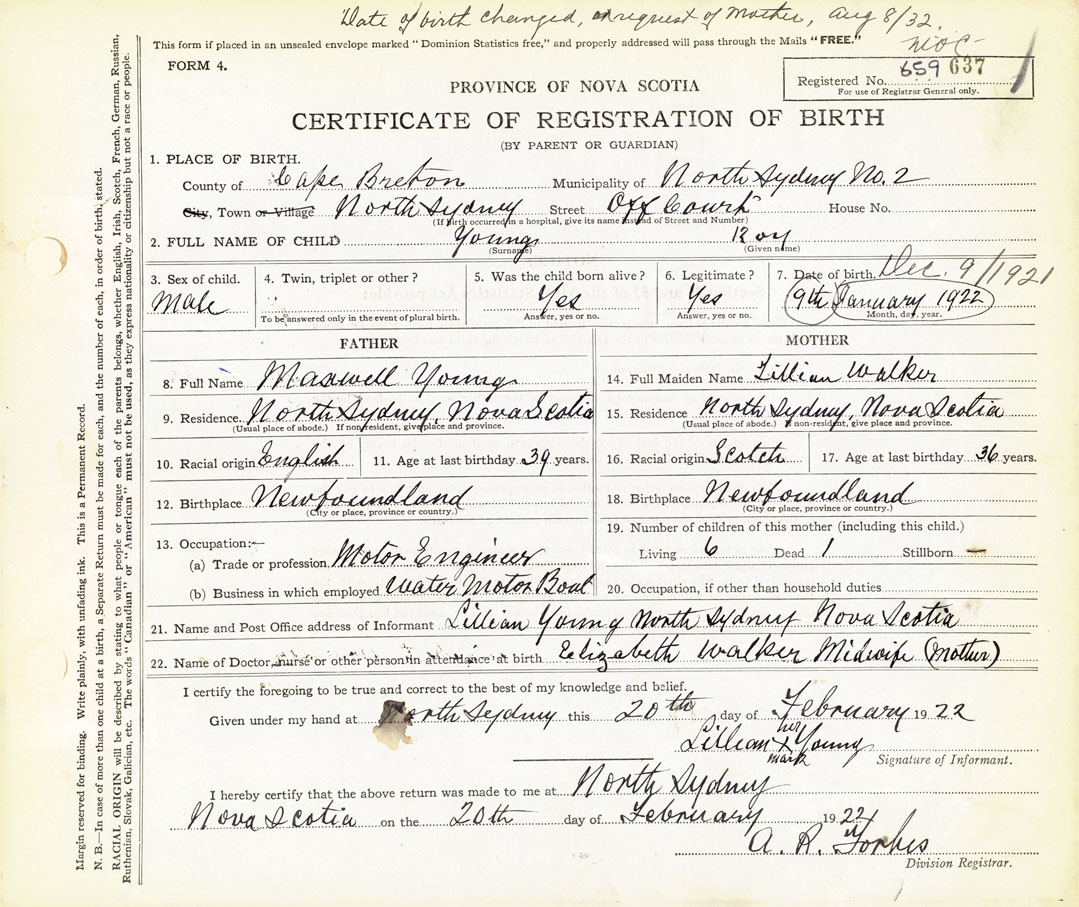 Date of birth changed, on request of Mother, Aug 8/32.
This form if placed in an unsealed envelope marked "Dominion Statistics free," and properly addressed will pass through the Mails "FREE."
FORM 4.
Registered No. 659 637
For use of Registrar General only.
PROVINCE OF NOVA SCOTIA
CERTIFICATE OF REGISTRATION OF BIRTH
(BY PARENT OR GUARDIAN)
1. PLACE OF BIRTH.
County of Cape Breton Municipality of North Sydney No. 2
City, Town or Village North Sydney Street Off Court House No.
(If birth occurred in a hospital, give its name instead of Street and Number)
2. FULL NAME OF CHILD Young Roy
(Surname) (Given name)
3. Sex of child. 4. Twin, triplet or other? 5. Was the child born alive? 6. Legitimate? 7. Date of birth. Dec. 9/1921
Male Yes Yes 9th January 1922
To be answered only in the event of plural birth. Answer, yes or no. Answer, yes or no. Month, day, year.
FATHER
8. Full Name Maxwell Young
9. Residence North Sydney, Nova Scotia
(Usual place of abode.) If non-resident, give place and province.
10. Racial origin English 11. Age at last birthday 39 years.
12. Birthplace Newfoundland
(City or place, province or country.)
13. Occupation:—
(a) Trade or profession Motor Engineer
(b) Business in which employed Water Motor Boat
MOTHER
14. Full Maiden Name Lillian Walker
15. Residence North Sydney, Nova Scotia
(Usual place of abode.) If non-resident, give place and province.
16. Racial origin Scotch 17. Age at last birthday 36 years.
18. Birthplace Newfoundland
(City or place, province or country.)
19. Number of children of this mother (including this child.)
Living 6 Dead 1 Stillborn —
20. Occupation, if other than household duties
21. Name and Post Office address of Informant Lillian Young North Sydney Nova Scotia
22. Name of Doctor, nurse or other person in attendance at birth Elizabeth Walker Midwife (Mother)
I certify the foregoing to be true and correct to the best of my knowledge and belief.
Given under my hand at North Sydney this 20th day of February 1922
her
Lillian x Young
mark
Signature of Informant.
I hereby certify that the above return was made to me at North Sydney
Nova Scotia on the 20th day of February 1922
A. R. Forbes
Division Registrar.
Margin reserved for binding. Write plainly, with unfading ink. This is a Permanent Record.
N. B.—In case of more than one child at a birth, a Separate Return must be made for each, and the number of each, in order of birth, stated.
RACIAL ORIGIN will be described by stating to what people or tongue each of the parents belongs, whether English, Irish, Scotch, French, German, Russian,
Ruthenian, Slovak, Galician, etc. The words "Canadian" or "American" must not be used, as they express nationality or citizenship but not a race or people.